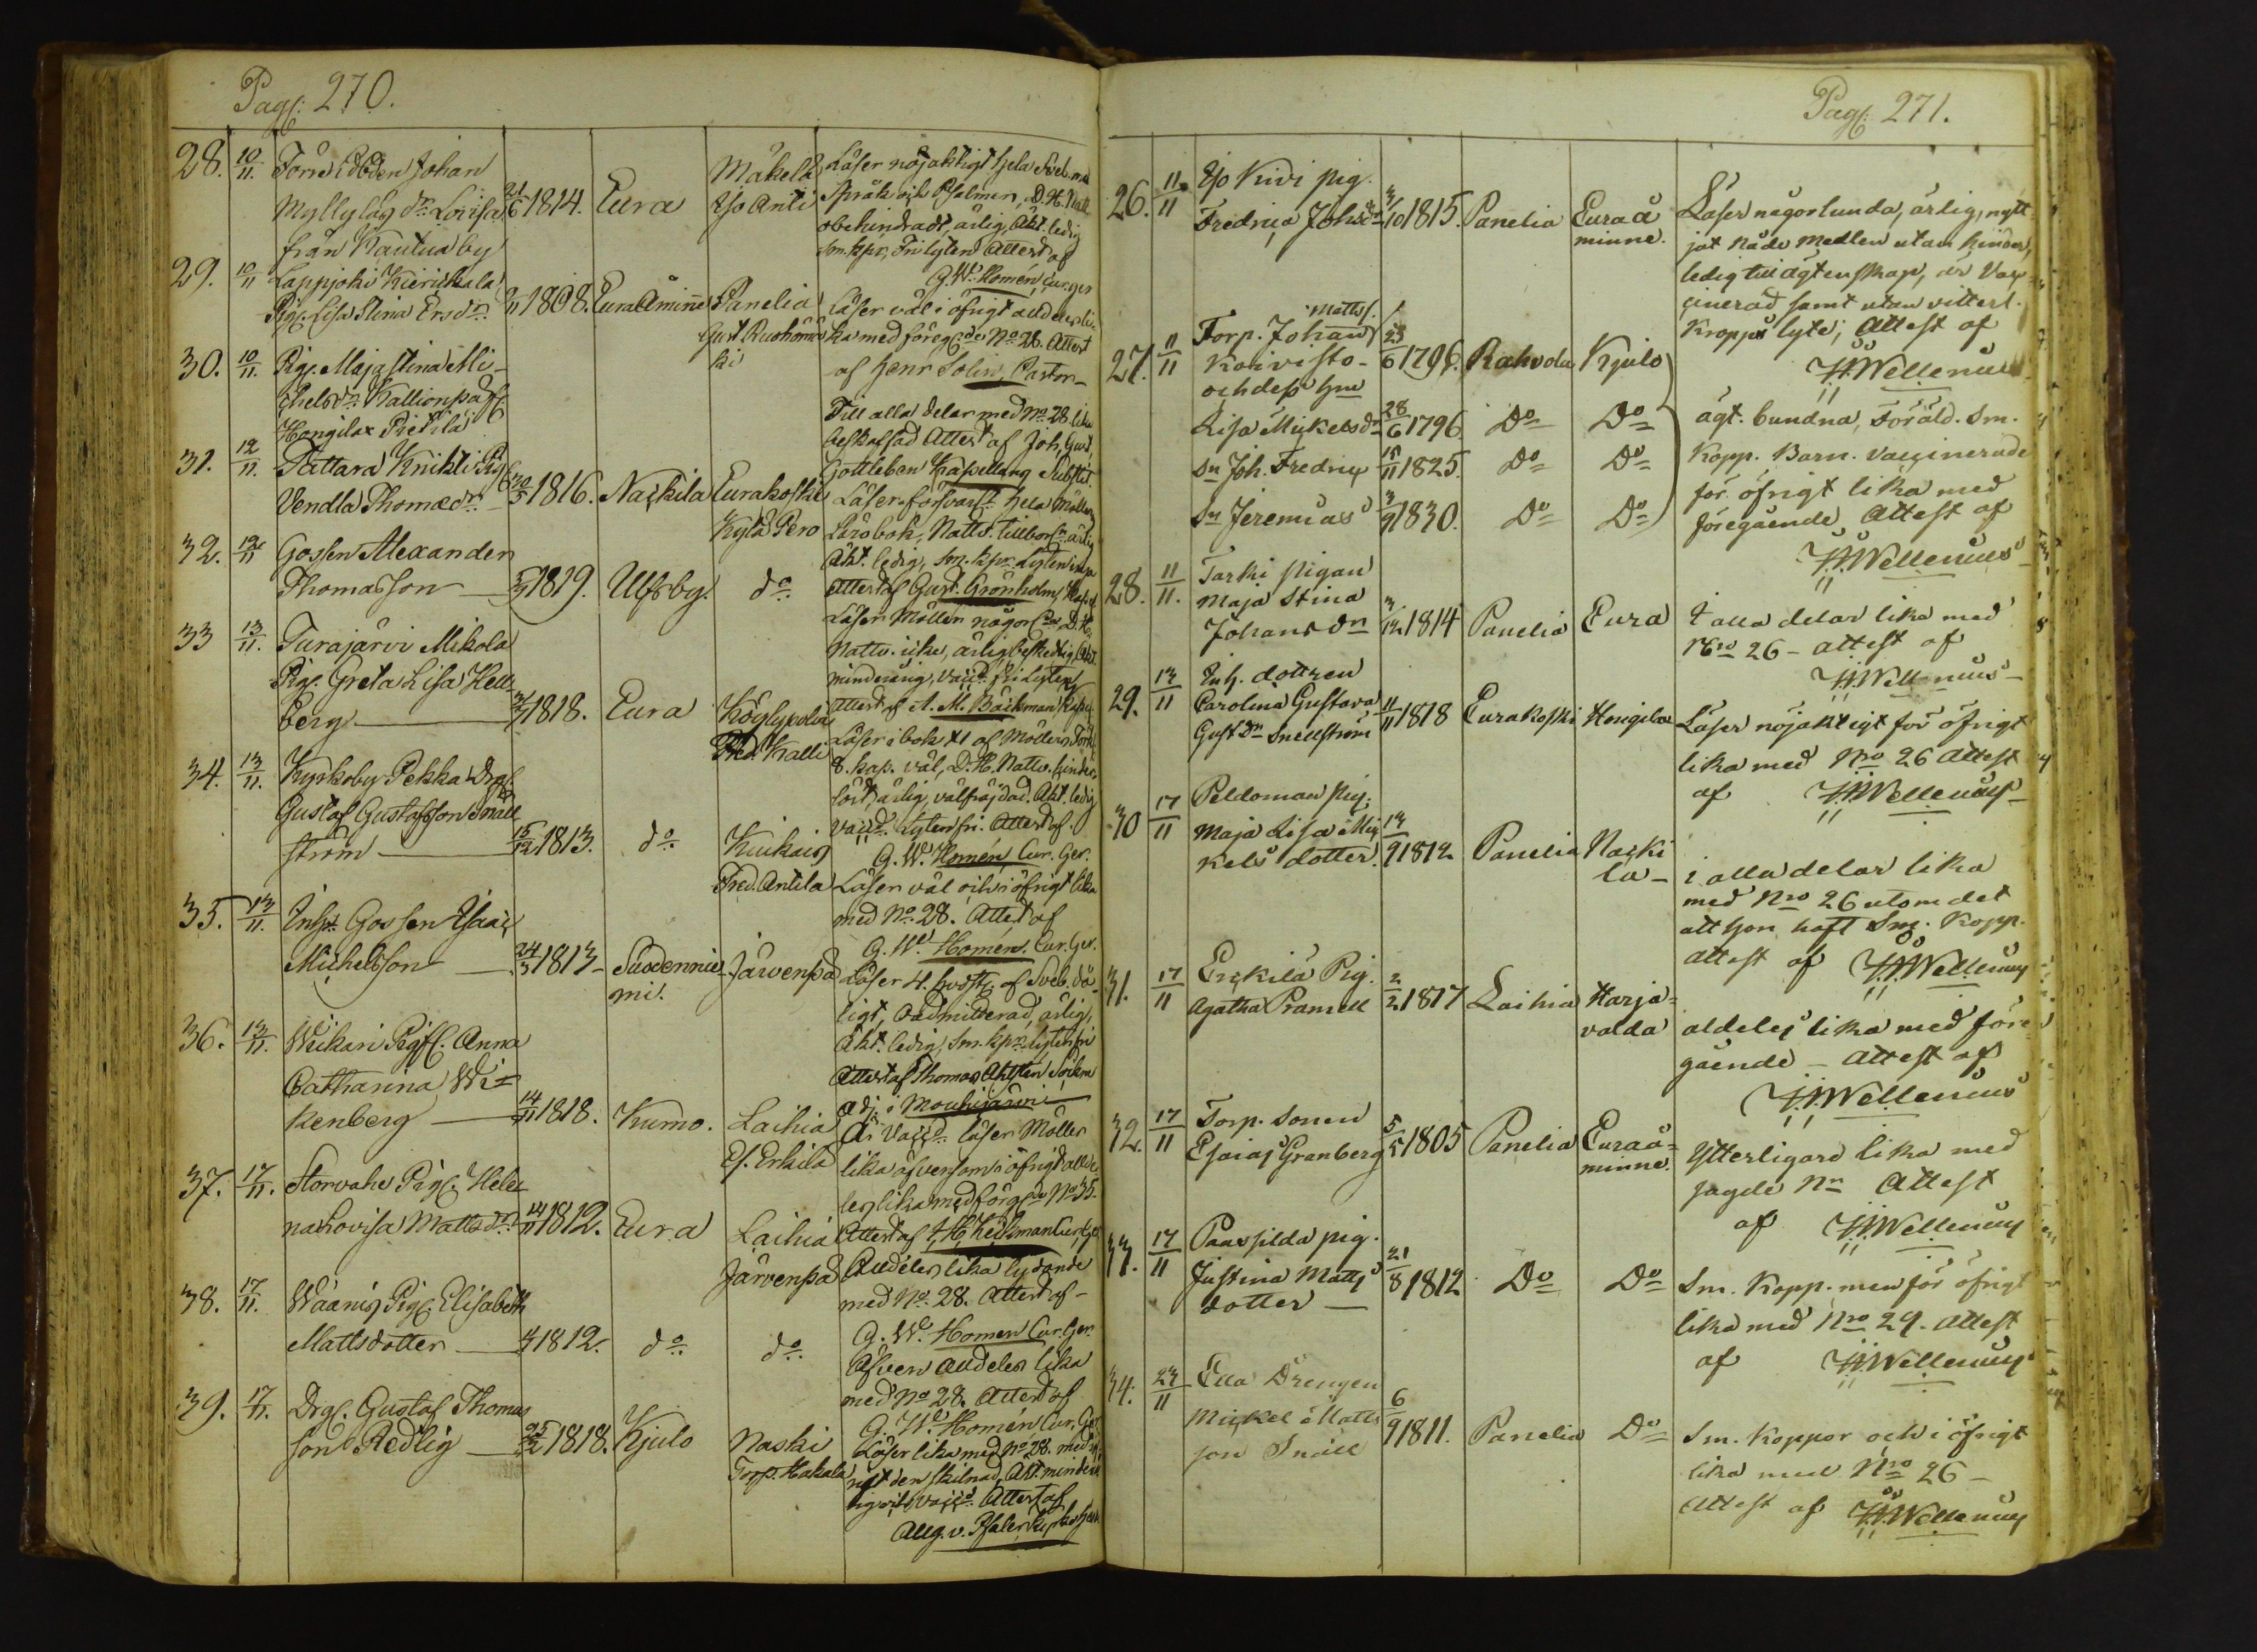 Pag: 270.
28. 10/11. Förre Boden Johan
Myllylä dr Lovisa 21/6 1814. Eura Mäkelä
Yso Anti
från Kautua by
Läser nöjaktigt hela
Språk och Psalmer, D. H. Natt.
obehindradt, ärlig, Äkt. ledig
Sm. kpr, Fri lyten Attest af
G. Wd Homén, Cur. ger
29. 10/11 Lappjoki Kierikkala
Pig. Lisa Stina Ersdr. 1808. Eura Åminne Panelia
Gust Ruohomä
ki
Läser väl i öfrigt alldeles li
ka med föregde No 28. Attest
af Henr Solin, Pastor
30. 10/11. Pig. Maja Stina Mi-
chelsdr. Kallionpää
Hongilax Prettilä
Till alla delar med No 28 lika
beskaffad Attest af Joh. Gust.
Gottleben Kapellans Substit.
31. 12/11. Pättara Knihti Pig
Vendla Thomædr. 30/5 1816. Nackila Eurakoski
Kylä Pero
Läser försvarl. hela Möllers
Lärobok, Nattv. tillbörl. ärlig
Äkt. ledig, Sm. kpr. Lyten inga
Attest af Gust. Grönholm Kapel
32. 12/11 Gossen Alexander
Thomasson 1819. Ulfsby. do
Läser Möllen någorl. D. H.
Nattv. icke, ärlig, beskedlig, Äkt.
minderårig, vaccd. fri Lyten
Attest af A. M. Bäckman Kapel.
33 13/11. Turajärvi Mikola
Pig. Greta Lisa Hell-
berg 1818. Eura Köylypolvi
Fred. Kalli
Läser i bok XI af Möllers Förkl.
8. kap. väl, D. H. Nattv. hinder
löst, ärlig, välfräjdad. Äkt. ledig
vaccd. Lyten fri. Attest af
G. Wd. Homén Cur. Ger.
34. 13/11. Kyrkoby Pekka Drg.
Gustaf Gustafsson Snäll
ström 15/12 1813. do Kiukais
Fred. Antila
Läser väl och i öfrigt lika
med No. 28. Attest af
G. Wd Homén. Cur. Ger.
35. 13/11. Inh. Gossen Isaac
Michelsson 24/3 1813 Suodennie-
mi. Järvenpä
Läser 4. hvdst. af Sveb. då-
ligt, oadmitterad, ärlig,
Äkt. ledig, Sm. kpr. Lyten fri
Attest af Thomas Ahlsten Sockne
adj. i Mouhijärvi
36. 13/11. Wickari Pig. Anna
Catharina Wi-
kenberg 14/11 1818. Kumo. Laihia
Es. Erkilä
Är vaccd. läser Möller
lika äfven som i öfrigt allde
les lika med förgde No 35.
37. 17/11. Storvahe Pig. Hele
na Lovisa Mattsdr 14/11 1812. Eura Laihia
Järvenpä
Attest af Hedman Cur. Ger
Alldeles lika lydande
med No. 28. Attest af
G. Wd. Homen Cur. Ger.
38. 17/11. Wäänis Pig. Elisabeth
Mattsdotter 1812. do do
Äfven alldeles lika
med No 28. Attest af
G. Wd. Homén Cur. Ger
39. 17/11. Drg. Gustaf Thomas
son Redlig 25/12 1818. Kjulo Naski
Torp. Hakala
Läser lika med No 28. med
den skilnad, Äkt. minderå
rig och vaccd. Attest af
Aug. v. Pfaler Kyrkoherde
Pag: 271.
26. 11/11 Yso Kivi pig.
Fredrica Johsdr 3/10 1815. Panelia Euraå
minne.
Läser någorlunda, ärlig, nytt
jat Nåde Medlen utan hinder,
ledig till ägtenskap, är Vax-
cinerad samt utan vitterl.
Kropps lyte; Attest af
H Wellenius
27. 11/11 Torp. Johan Matts.
Koivisto 23/6 1796. Rahvola Kjulo
och dess hu
Lisa Mickelsdr 28/6 1796. Do Do
Sn Joh. Fredric 15/11 1825. Do Do
Sn Jeremias 3/9 1830. Do Do
ägt. bundna, Föräld. Sm.
Kopp. Barn. vaccinerade
för öfrigt lika med
föregående. Attest af
H Wellenius
28. 11/11. Tarki pigan
Maja Stina
Johansdn 3/12 1814 Panelia Eura
I alla delar lika med
Nro 26 - attest af
H Wellenius
29. 13/11 Inh. dottren
Carolina Gustava
Gustdn Snellström 11/11 1818 Eurakoski Hongilax
Läser nöjaktigt för öfrigt
lika med Nro 26 Attest
af H Wellenius
30 17/11 Peldoman pig.
Maja Lisa Mic
kels dotter. 13/9 1812 Panelia Nacki
la
i alla delar lika
med Nro 26 utom det
att hon haft Sm. Kopp.
attest af H Wellenius
31. 17/11 Erckilä Pig.
Agatha Pramell 2/2 1817 Laihia Harja-
valda
aldeles lika med före
gående - Attest af
H Wellenius
32. 17/11 Torp. Sonen
Esaias Granberg 5/5 1805 Panelia Euraå-
minne.
Ytterligare lika med
sagde Nr Attest
af H Wellenius
33. 17/11 Paassilda pig.
Justina Matts
dotter 21/8 1812 Do Do
Sm. Kopp. men för öfrigt
lika med Nro 29. attest
af H Wellenius
34. 23/11 Ella Drengen
Mickel Matts
son Snäll 6/9 1811. Panelia Do
Sm. Koppor och i öfrigt
lika med Nro 26
Attest af H Wellenius